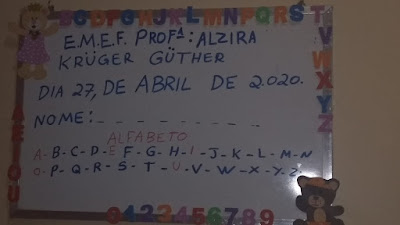 B C D F G H J K L M N P Q R S T
V
W
X
Y
Z
E.M.E.F. PROFª: ALZIRA
KRÜGER GÜTHER
DIA 27, DE ABRIL DE 2.020.
NOME: _ _ _ _ _ _ _ _
ALFABETO
A - B - C - D - E F - G - H - I - J - K - L - M - N
O - P - Q - R - S - T - U - V - W - X - Y - Z.
A E I O U
0 1 2 3 4 5 6 7 8 9